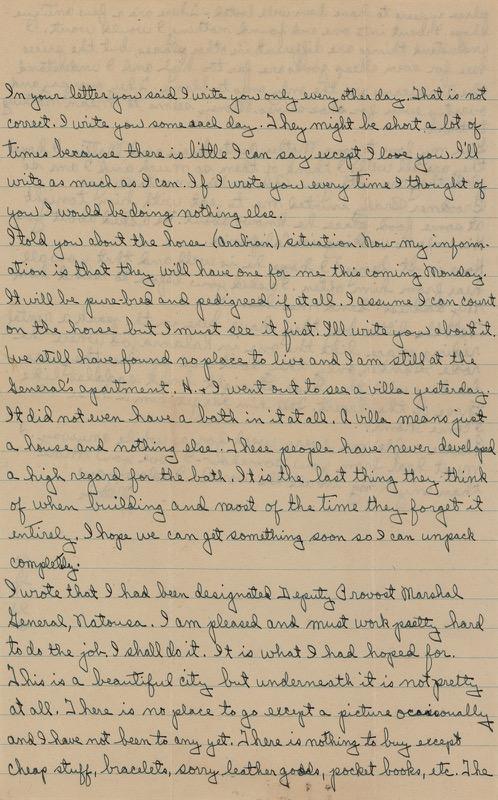 In your letter you said I write you only every other day. That is not
correct. I write you some each day. They might be short a lot of
times because there is little I can say except I love you. I'll
write as much as I can. If I wrote you every time I thought of
you I would be doing nothing else.
I told you about the horse (Arabian) situation. Now my inform-
ation is that they will have one for me this coming Monday.
It will be pure-bred and pedigreed if at all. I assume I can count
on the horse but I must see it first. I'll write you about it.
We still have found no place to live and I am still at the
General's apartment. H. + I went out to see a villa yesterday.
It did not even have a bath in it at all. A villa means just
a house and nothing else. These people have never developed
a high regard for the bath. It is the last thing they think
of when building and most of the time they forget it
entirely. I hope we can get something soon so I can unpack
completly.
I wrote that I had been designated Deputy Provost Marshal
General, Natousa. I am pleased and must work pretty hard
to do the job. I shall do it. It is what I had hoped for.
This is a beautiful city but underneath it is not pretty
at all. There is no place to go except a picture occasionally
and I have not been to any yet. There is nothing to buy except
cheap stuff, bracelets, sorry leather goods, pocket books, etc. The